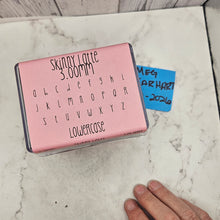 Skinny Latte
3.00mm
a b c d e f g h i
j k l m n o p q r
s t u v w x y z
Lowercase
MEG
EARHART
-2026